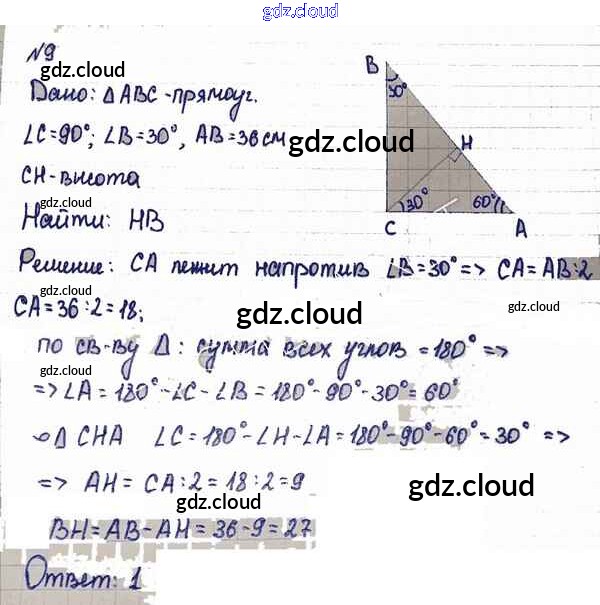 gdz.cloud
gdz.cloud
№9
gdz.cloud
Дано: ΔABC - прямоуг.
∠C=90°; ∠B=30°, AB=36 см
gdz.cloud
gdz.cloud
CH - высота
gdz.cloud
Найти: HB
B
30°
H
30°
60°
C
A
Решение: CA лежит напротив ∠B=30° => CA=AB:2
gdz.cloud
gdz.cloud
CA=36:2=18;
gdz.cloud
gdz.cloud
по св-ву Δ: сумма всех углов =180° =>
=> ∠A = 180° - ∠C - ∠B = 180° - 90° - 30° = 60°
gdz.cloud
Δ CHA ∠C = 180° - ∠H - ∠A = 180° - 90° - 60° = 30° =>
=> AH = CA:2 = 18:2 = 9
gdz.cloud
gdz.cloud
BH = AB - AH = 36 - 9 = 27
Ответ: 1
gdz.cloud
gdz.cloud